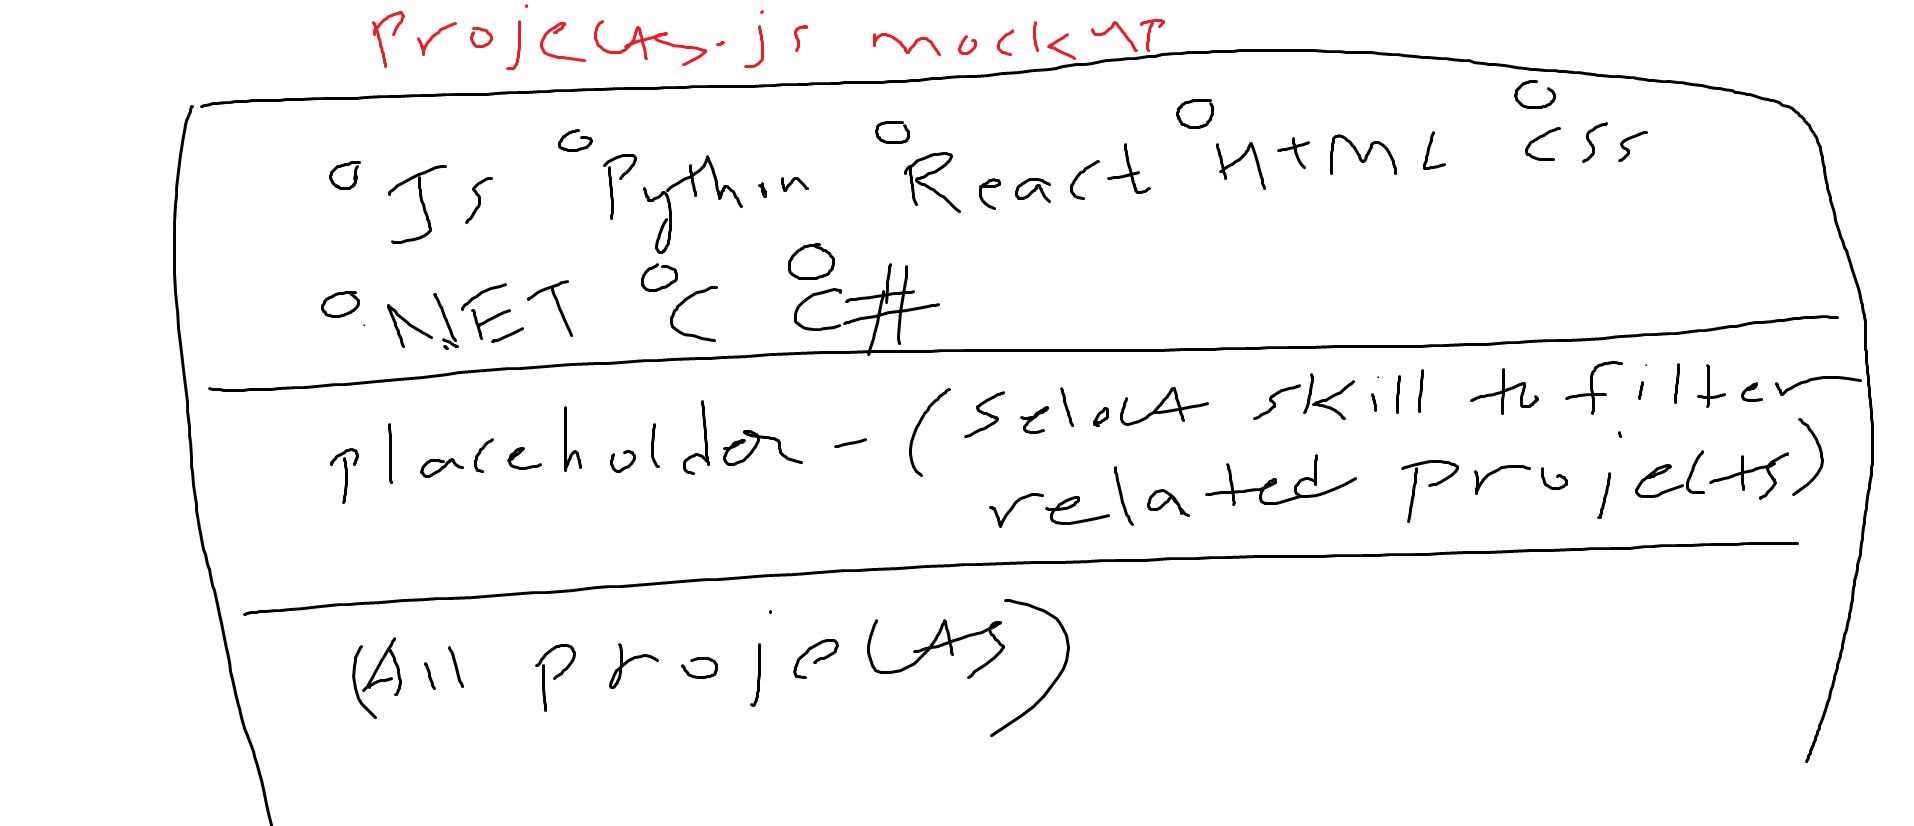 Projects.js mockup
Js Python React HTML CSS
.NET C C#
placeholder - (select skill to filter
related projects)
(All projects)